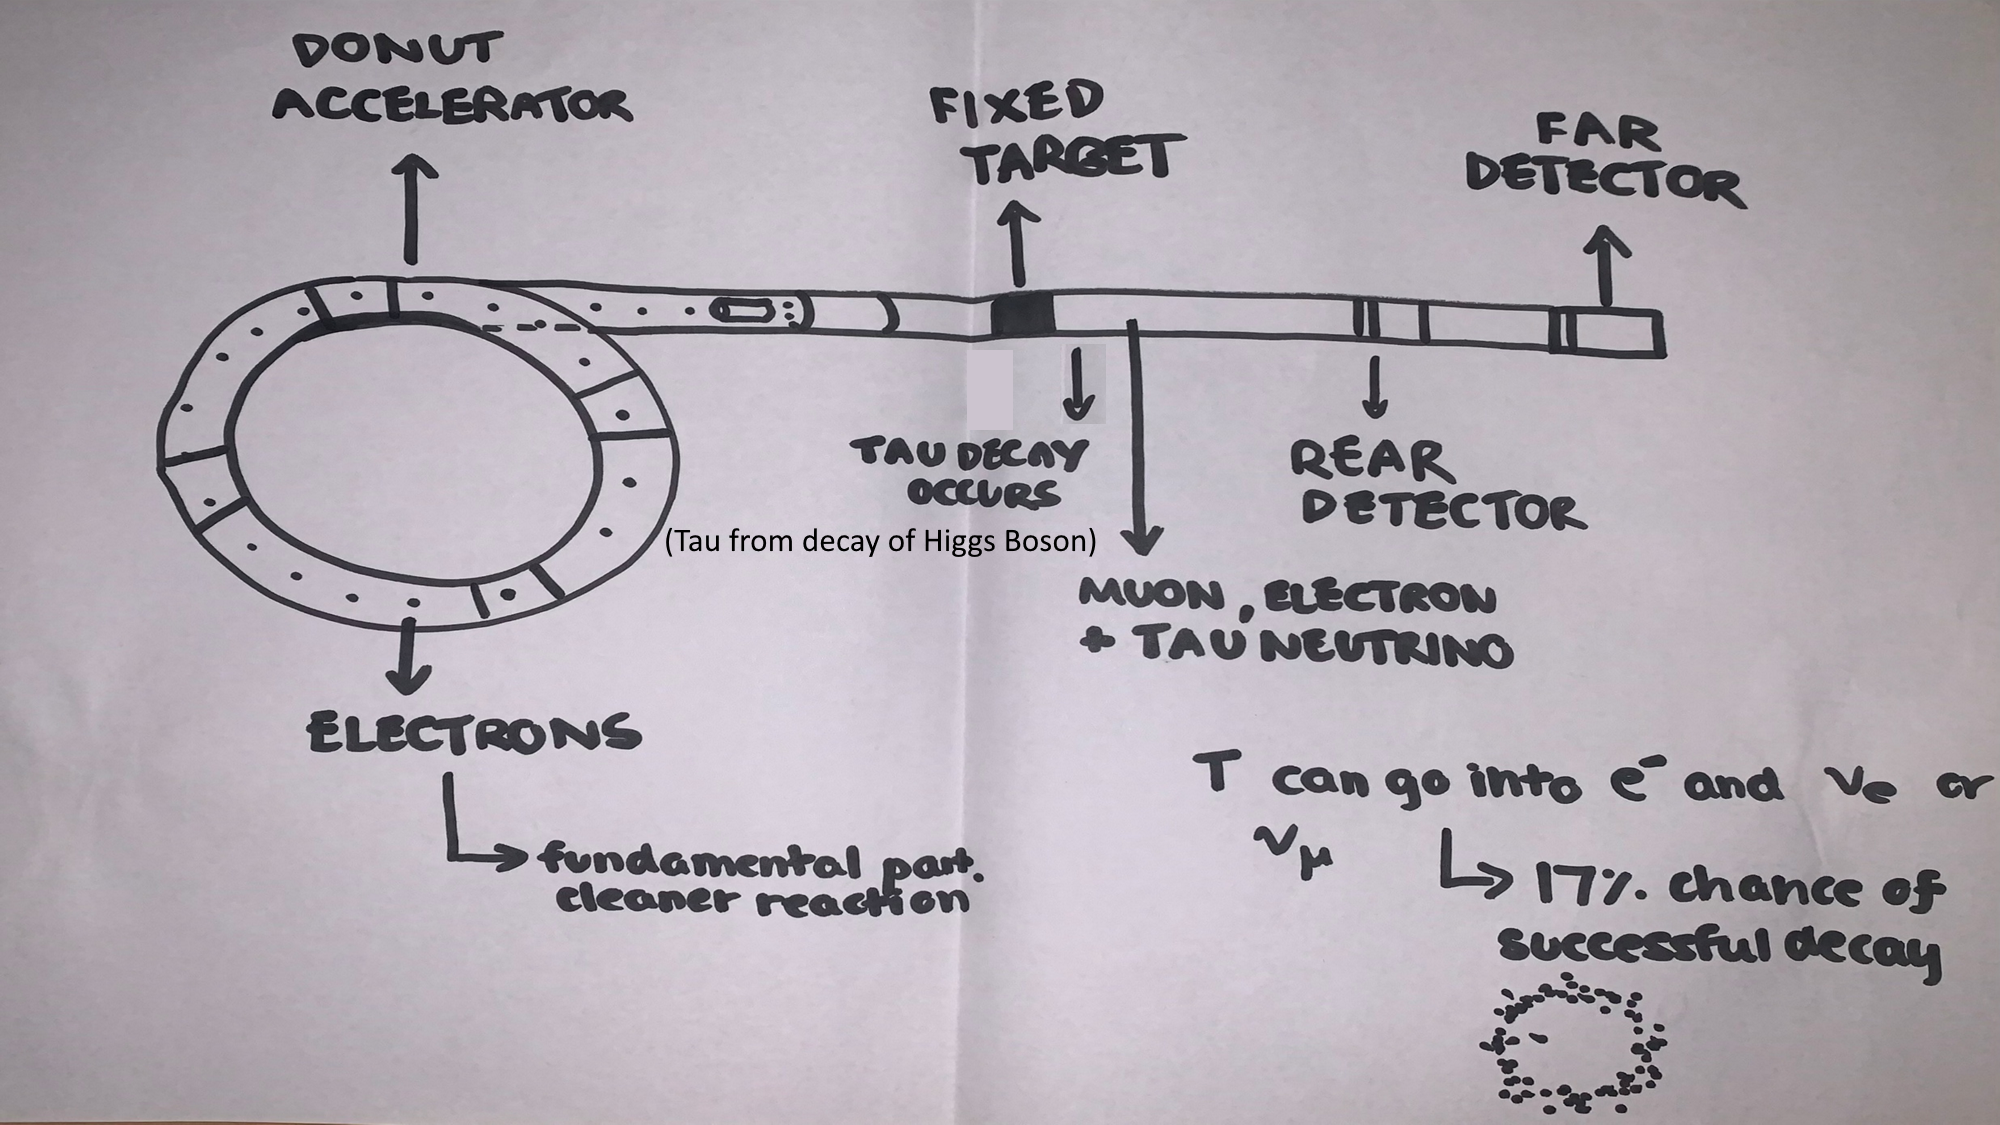 DONUT
ACCELERATOR
FIXED
TARGET
FAR
DETECTOR
TAU DECAY
OCCURS
(Tau from decay of Higgs Boson)
REAR
DETECTOR
MUON, ELECTRON
+ TAU NEUTRINO
ELECTRONS
fundamental part.
cleaner reaction
T can go into e⁻ and νe or
νμ
17% chance of
successful decay